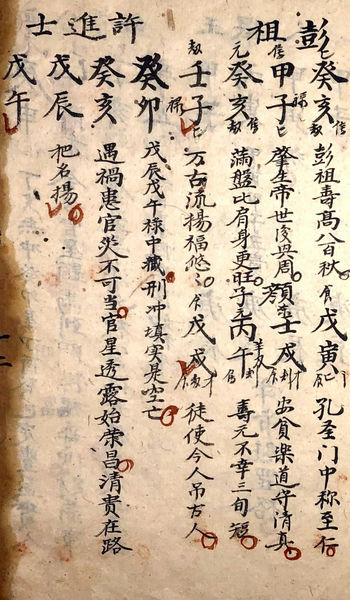 彭祖
癸亥 彭祖壽高八百秋
甲子 肇生帝世後與周
癸亥 满盤比肩身更旺
壬子 万古流揚福悠〻
顏子
戊寅 孔圣门中称至仁
壬戌 安貧樂道守清真
丙午 壽元不幸三旬短
戊戌 徒使今人吊古人
許進士
癸卯 戊辰戊午禄中藏 刑冲填实是空亡
癸亥 遇禍患官災不可当 官星透露始荣昌 清貴在路
戊辰 把名揚
戊午